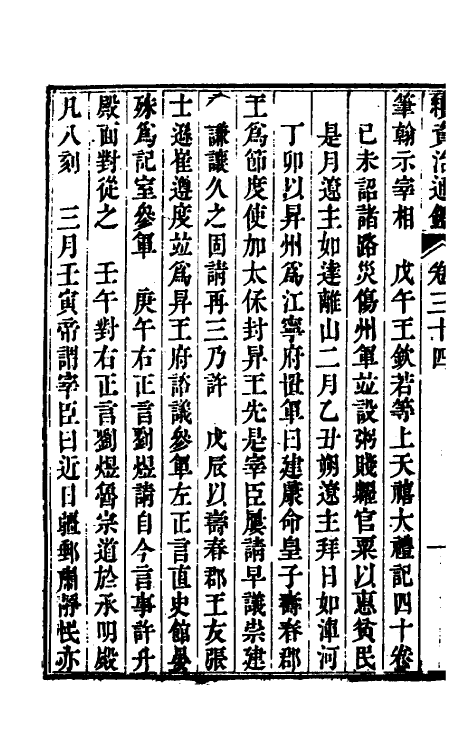 續資治通鑑 卷三十四 一
筆翰示宰相 戊午王欽若等上天禧大禮記四十卷
已未詔諸路災傷州軍竝設粥賤糶官粟以惠貧民
是月遼主如達離山二月乙丑朔遼主拜日如渾河
丁卯以昇州為江寧府置軍曰建康命皇子壽春郡
王為節度使加太保封昇王先是宰臣屢請早議崇建
帝謙讓久之固請再三乃許 戊辰以壽春郡王友張
士遜崔遵度竝為昇王府諮議參軍左正言直史館晏
殊為記室參軍 庚午右正言劉煜請自今言事許升
殿面對從之 壬午對右正言劉煜魯宗道於承明殿
凡八刻 三月壬寅帝謂宰臣曰近日疆郵肅靜民亦